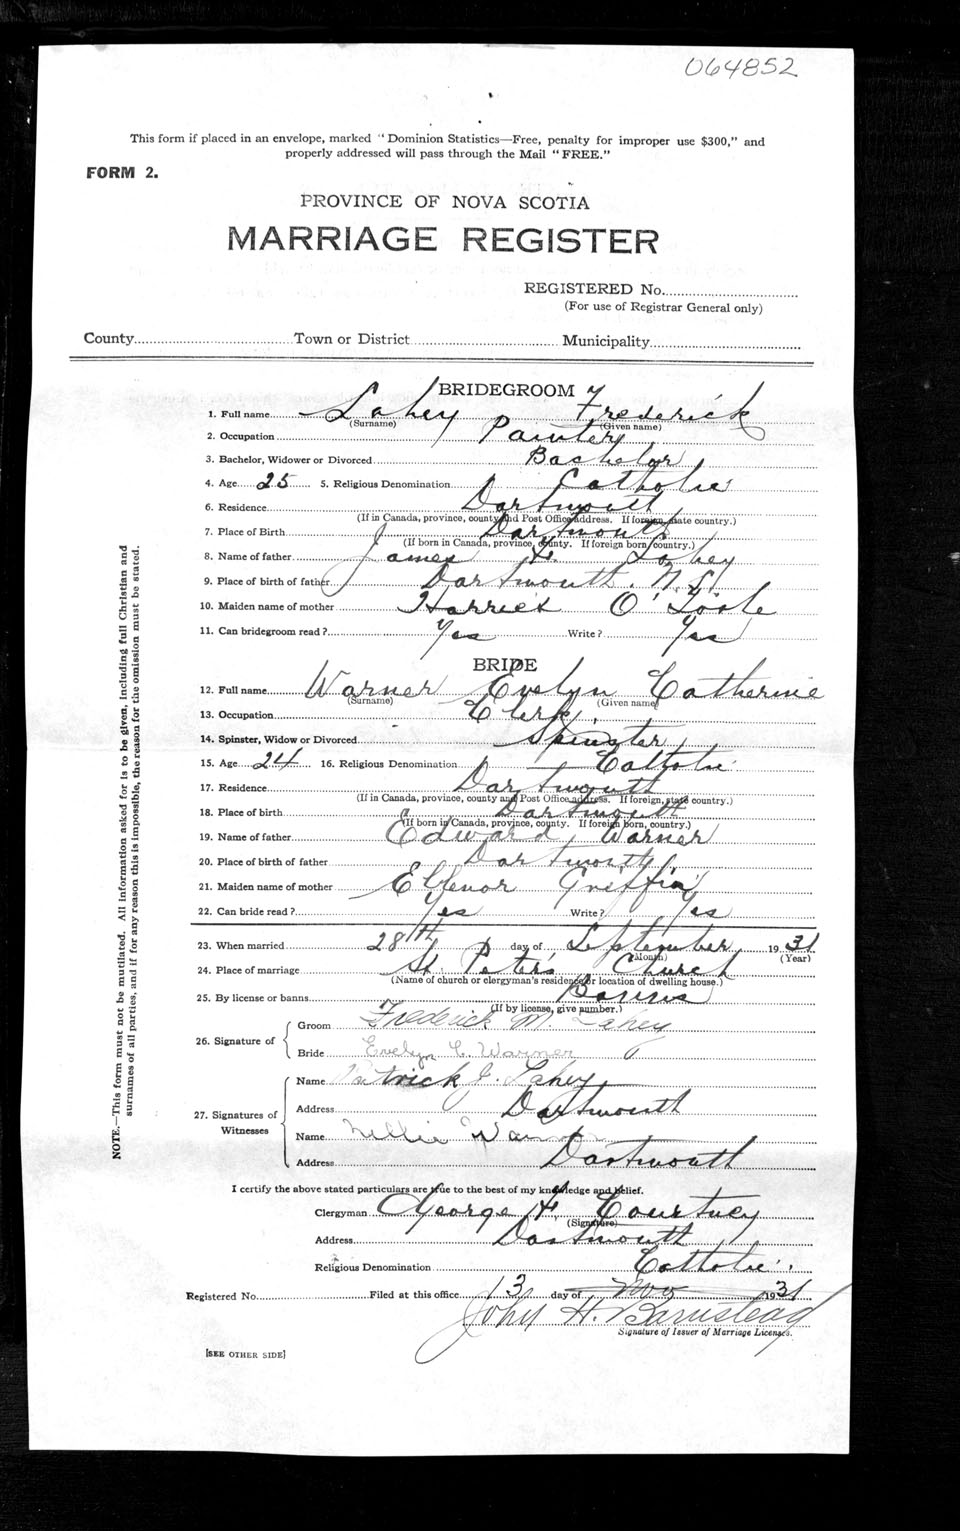 064852
This form if placed in an envelope, marked "Dominion Statistics—Free, penalty for improper use $300," and
properly addressed will pass through the Mail "FREE."
FORM 2.
PROVINCE OF NOVA SCOTIA
MARRIAGE REGISTER
REGISTERED No.
(For use of Registrar General only)
County Town or District Municipality
BRIDEGROOM
1. Full name Lahey Frederick
(Surname) (Given name)
2. Occupation Painter
3. Bachelor, Widower or Divorced Bachelor
4. Age 25 5. Religious Denomination Catholic
6. Residence Dartmouth
(If in Canada, province, county and Post Office address. If foreign, state country.)
7. Place of Birth Dartmouth
(If born in Canada, province, county. If foreign born, country.)
8. Name of father James H. Lahey
9. Place of birth of father Dartmouth. N.S.
10. Maiden name of mother Harriet O'Toole
11. Can bridegroom read? Yes Write? Yes
BRIDE
12. Full name Warner Evelyn Catherine
(Surname) (Given name)
13. Occupation Clerk
14. Spinster, Widow or Divorced Spinster
15. Age 24 16. Religious Denomination Catholic
17. Residence Dartmouth
(If in Canada, province, county and Post Office address. If foreign, state country.)
18. Place of birth Dartmouth
(If born in Canada, province, county. If foreign born, country.)
19. Name of father Edward Warner
20. Place of birth of father Dartmouth
21. Maiden name of mother Ellenor Griffin
22. Can bride read? Yes Write? Yes
23. When married 28th day of September 1931
(Month) (Year)
24. Place of marriage St. Peter's Church
(Name of church or clergyman's residence or location of dwelling house.)
25. By license or banns Banns
(If by license, give number.)
26. Signature of
Groom Frederick M. Lahey
Bride Evelyn C. Warner
27. Signatures of Witnesses
Name Patrick J. Lahey
Address Dartmouth
Name Nellie Warner
Address Dartmouth
I certify the above stated particulars are true to the best of my knowledge and belief.
Clergyman George F. Courtney
(Signature)
Address Dartmouth
Religious Denomination Catholic
Registered No. Filed at this office 13 day of Nov 1931
John H. Barnstead
Signature of Issuer of Marriage Licenses.
[SEE OTHER SIDE]
NOTE.—This form must not be mutilated. All information asked for is to be given, including full Christian and
surnames of all parties, and if for any reason this is impossible, the reason for the omission must be stated.